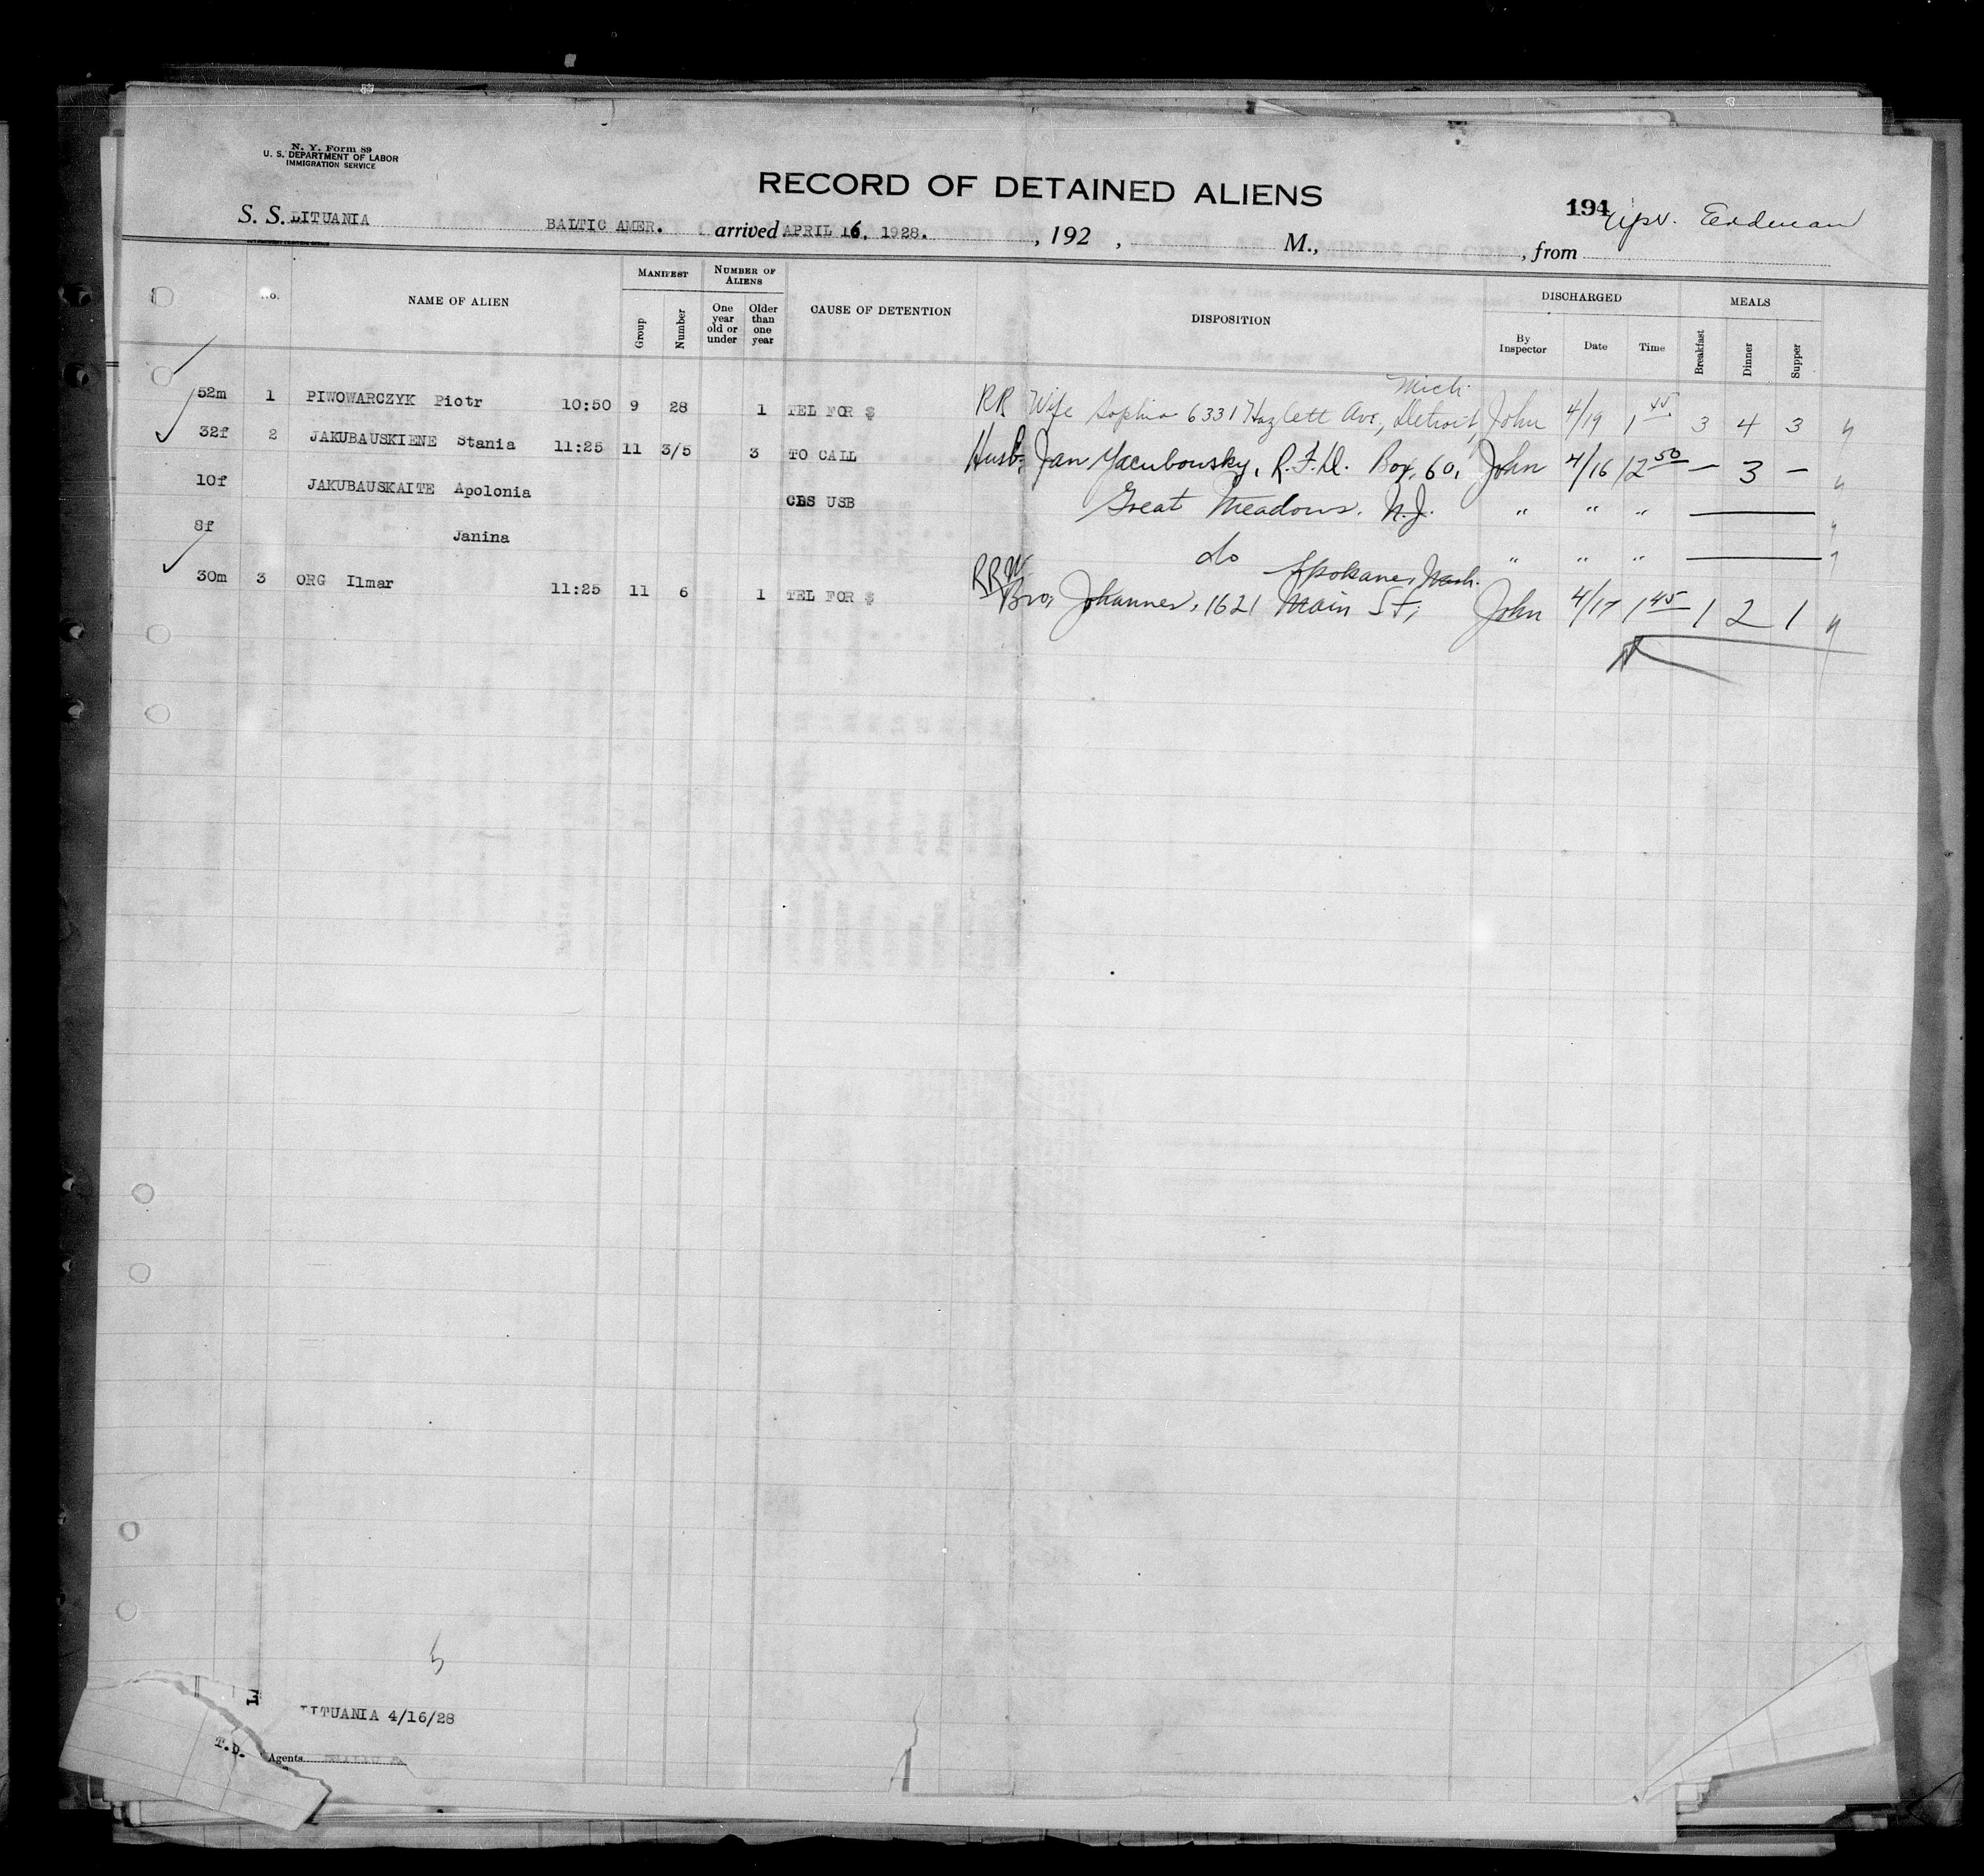 N. Y. Form 89
U. S. DEPARTMENT OF LABOR
IMMIGRATION SERVICE
RECORD OF DETAINED ALIENS
194
S. S. LITUANIA BALTIC AMER. arrived APRIL 16, 1928. , 192 , M., , from
No. NAME OF ALIEN MANIFEST Group Number NUMBER OF ALIENS One year old or under Older than one year CAUSE OF DETENTION DISPOSITION DISCHARGED By Inspector Date Time MEALS Breakfast Dinner Supper
Mich.
52m 1 PIWOWARCZYK Piotr 10:50 9 28 1 TEL FOR $ RR Wife Sophia 6331 Hazlett Ave, Detroit, John 4/19 1 45 3 4 3
32f 2 JAKUBAUSKIENE Stania 11:25 11 3/5 3 TO CALL Husb. Jan Yacubowsky, R.F.D. Box 60, John 4/16 12 50 — 3 —
10f JAKUBAUSKAITE Apolonia CBS USB Great Meadows, N.J. " " "
8f Janina do " " "
RRW Spokane, Wash.
30m 3 ORG Ilmar 11:25 11 6 1 TEL FOR $ Bro, Johannes, 1621 Main St, John 4/17 1 45 1 2 1
5
LITUANIA 4/16/28
T.D. Agents